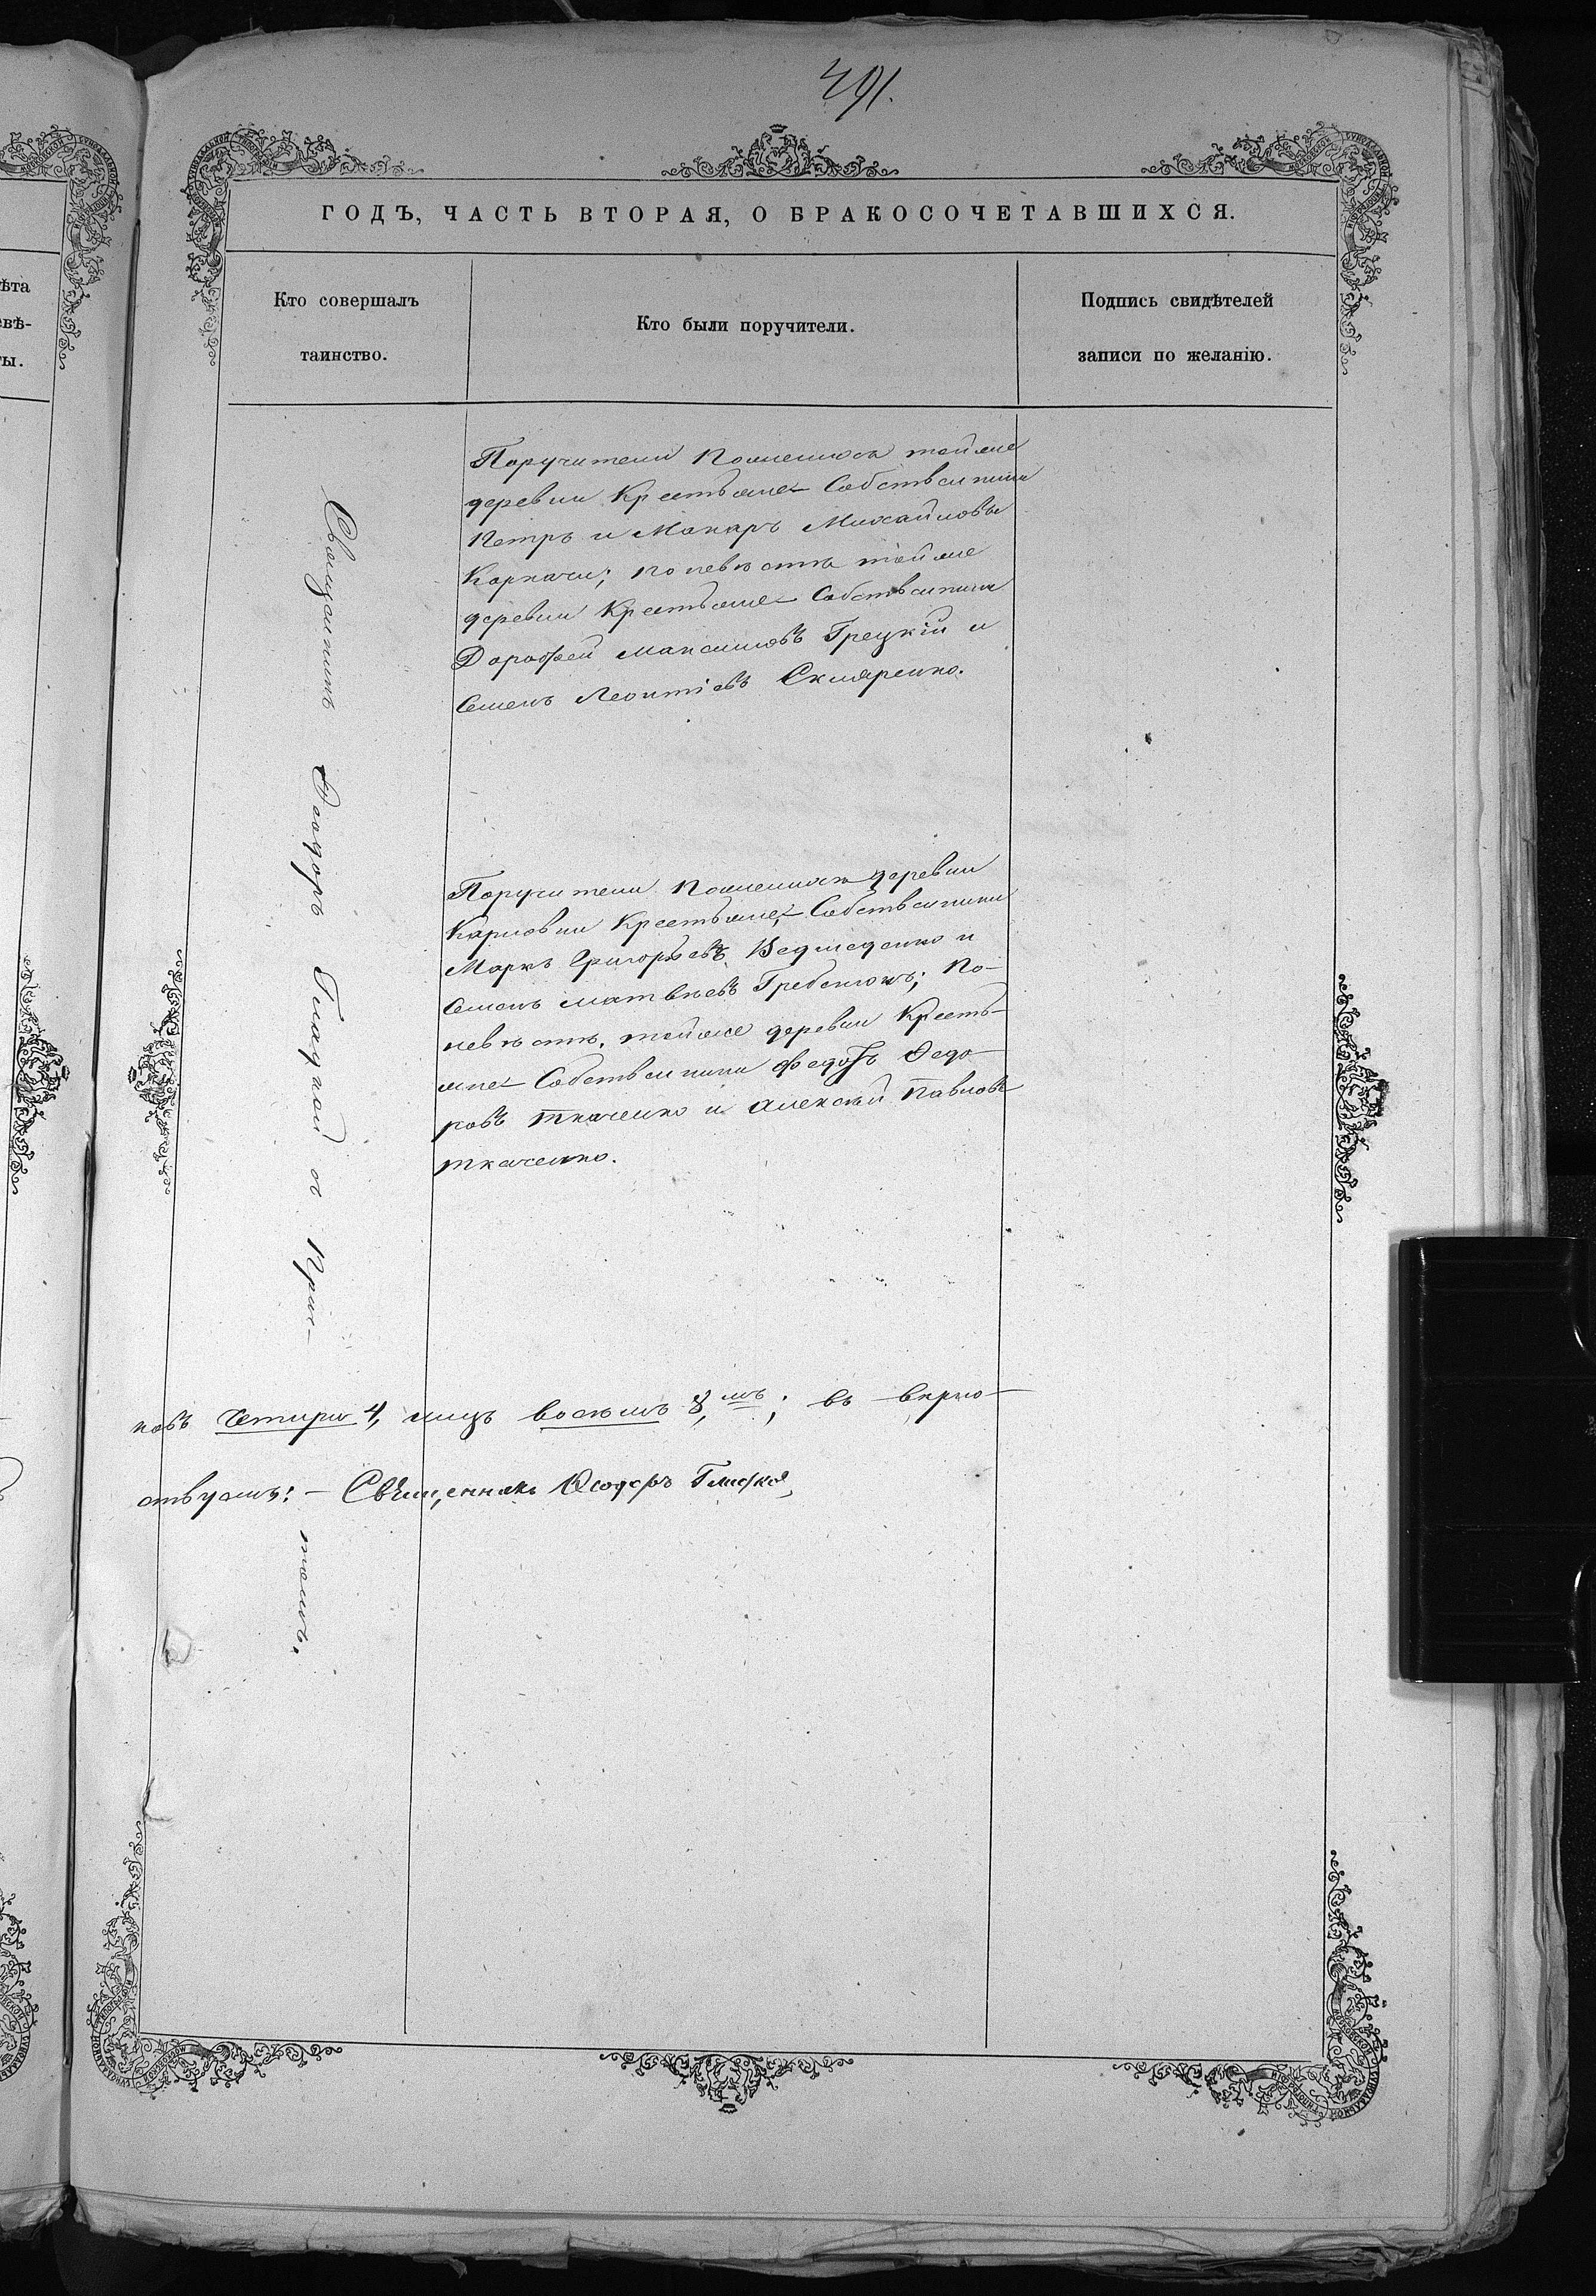 491.
ГОДЪ, ЧАСТЬ ВТОРАЯ, О БРАКОСОЧЕТАВШИХСЯ.
Кто совершалъ
таинство.
Кто были поручители.
Подпись свидѣтелей
записи по желанію.
Священникъ Ѳеодоръ Глад­кой съ Прич-
томъ.
Поручители по женихѣ тойже
деревни Крестьяне Собственники
Петръ и Макаръ Михайловы
Корначи; по невѣстѣ тойже
деревни Крестьяне Собственники
Дорофей Максимовъ Грецкій и
Семенъ Леонтіевъ Скляренко.
Поручители по женихѣ деревни
Карловки Крестьяне, Собственники
Маркъ Григорьевъ Ведмеденко и
Семенъ Матвѣевъ Гребенюкъ; по
невѣстѣ, тойже деревни Кресть-
яне Собственники Федотъ Ѳедо-
ровъ Ткаченко и Алексѣй Павловъ
Ткаченко.
ковъ четыри 4, лицъ восемь 8,мь; въ вѣрно-
ствуемъ: – Священникъ Ѳеодоръ Гладкой
ѣта
евѣ-
ты.